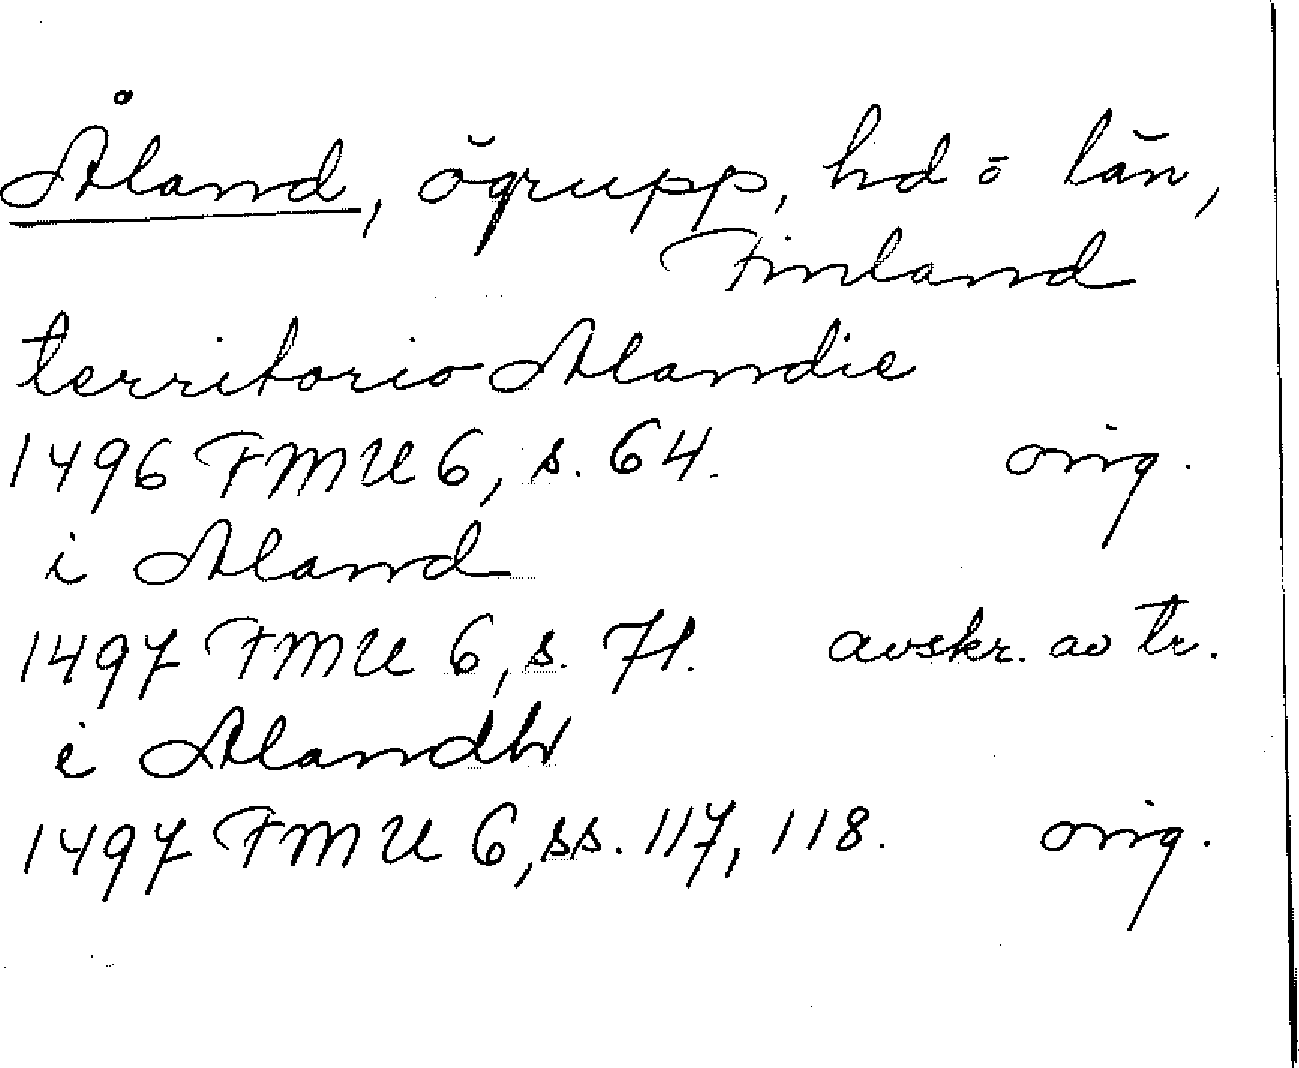 Åland, ögrupp, hd = län,
Finland
territorio Alandie
1496 FMU 6, s. 64. orig.
i Aland
1497 FMU 6, s. 71. avskr. av tr.
i Alandh
1497 FMU 6, ss. 117, 118. orig.